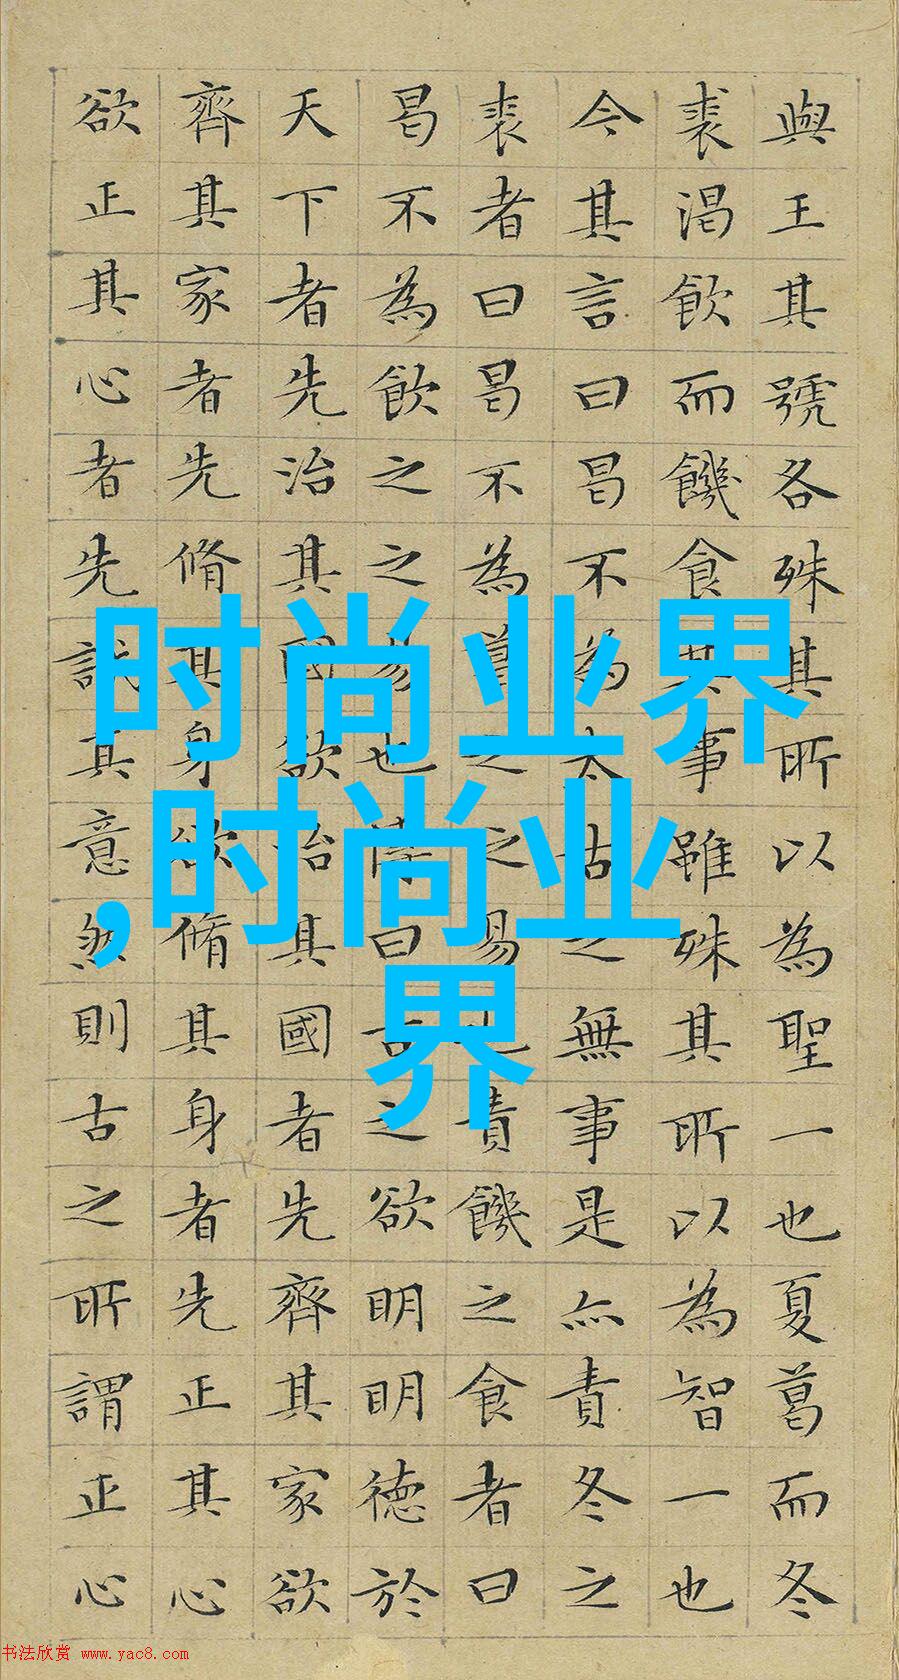 與王其號各殊其所以為聖一也夏葛而冬
裘渴飲而饑食其事雖殊其所以為智一也
今其言曰曷不為太古之無事是亦責冬之
裘者曰曷不為葛之之易也責饑之食者曰
曷不為飲之之易也傳曰古之欲明明德於
天下者先治其國欲治其國者先齊其家欲
齊其家者先脩其身欲脩其身者先正其心
欲正其心者先誠其意然則古之所謂正心
时尚业界
,时尚业
界
书法欣赏 www.yac8.com